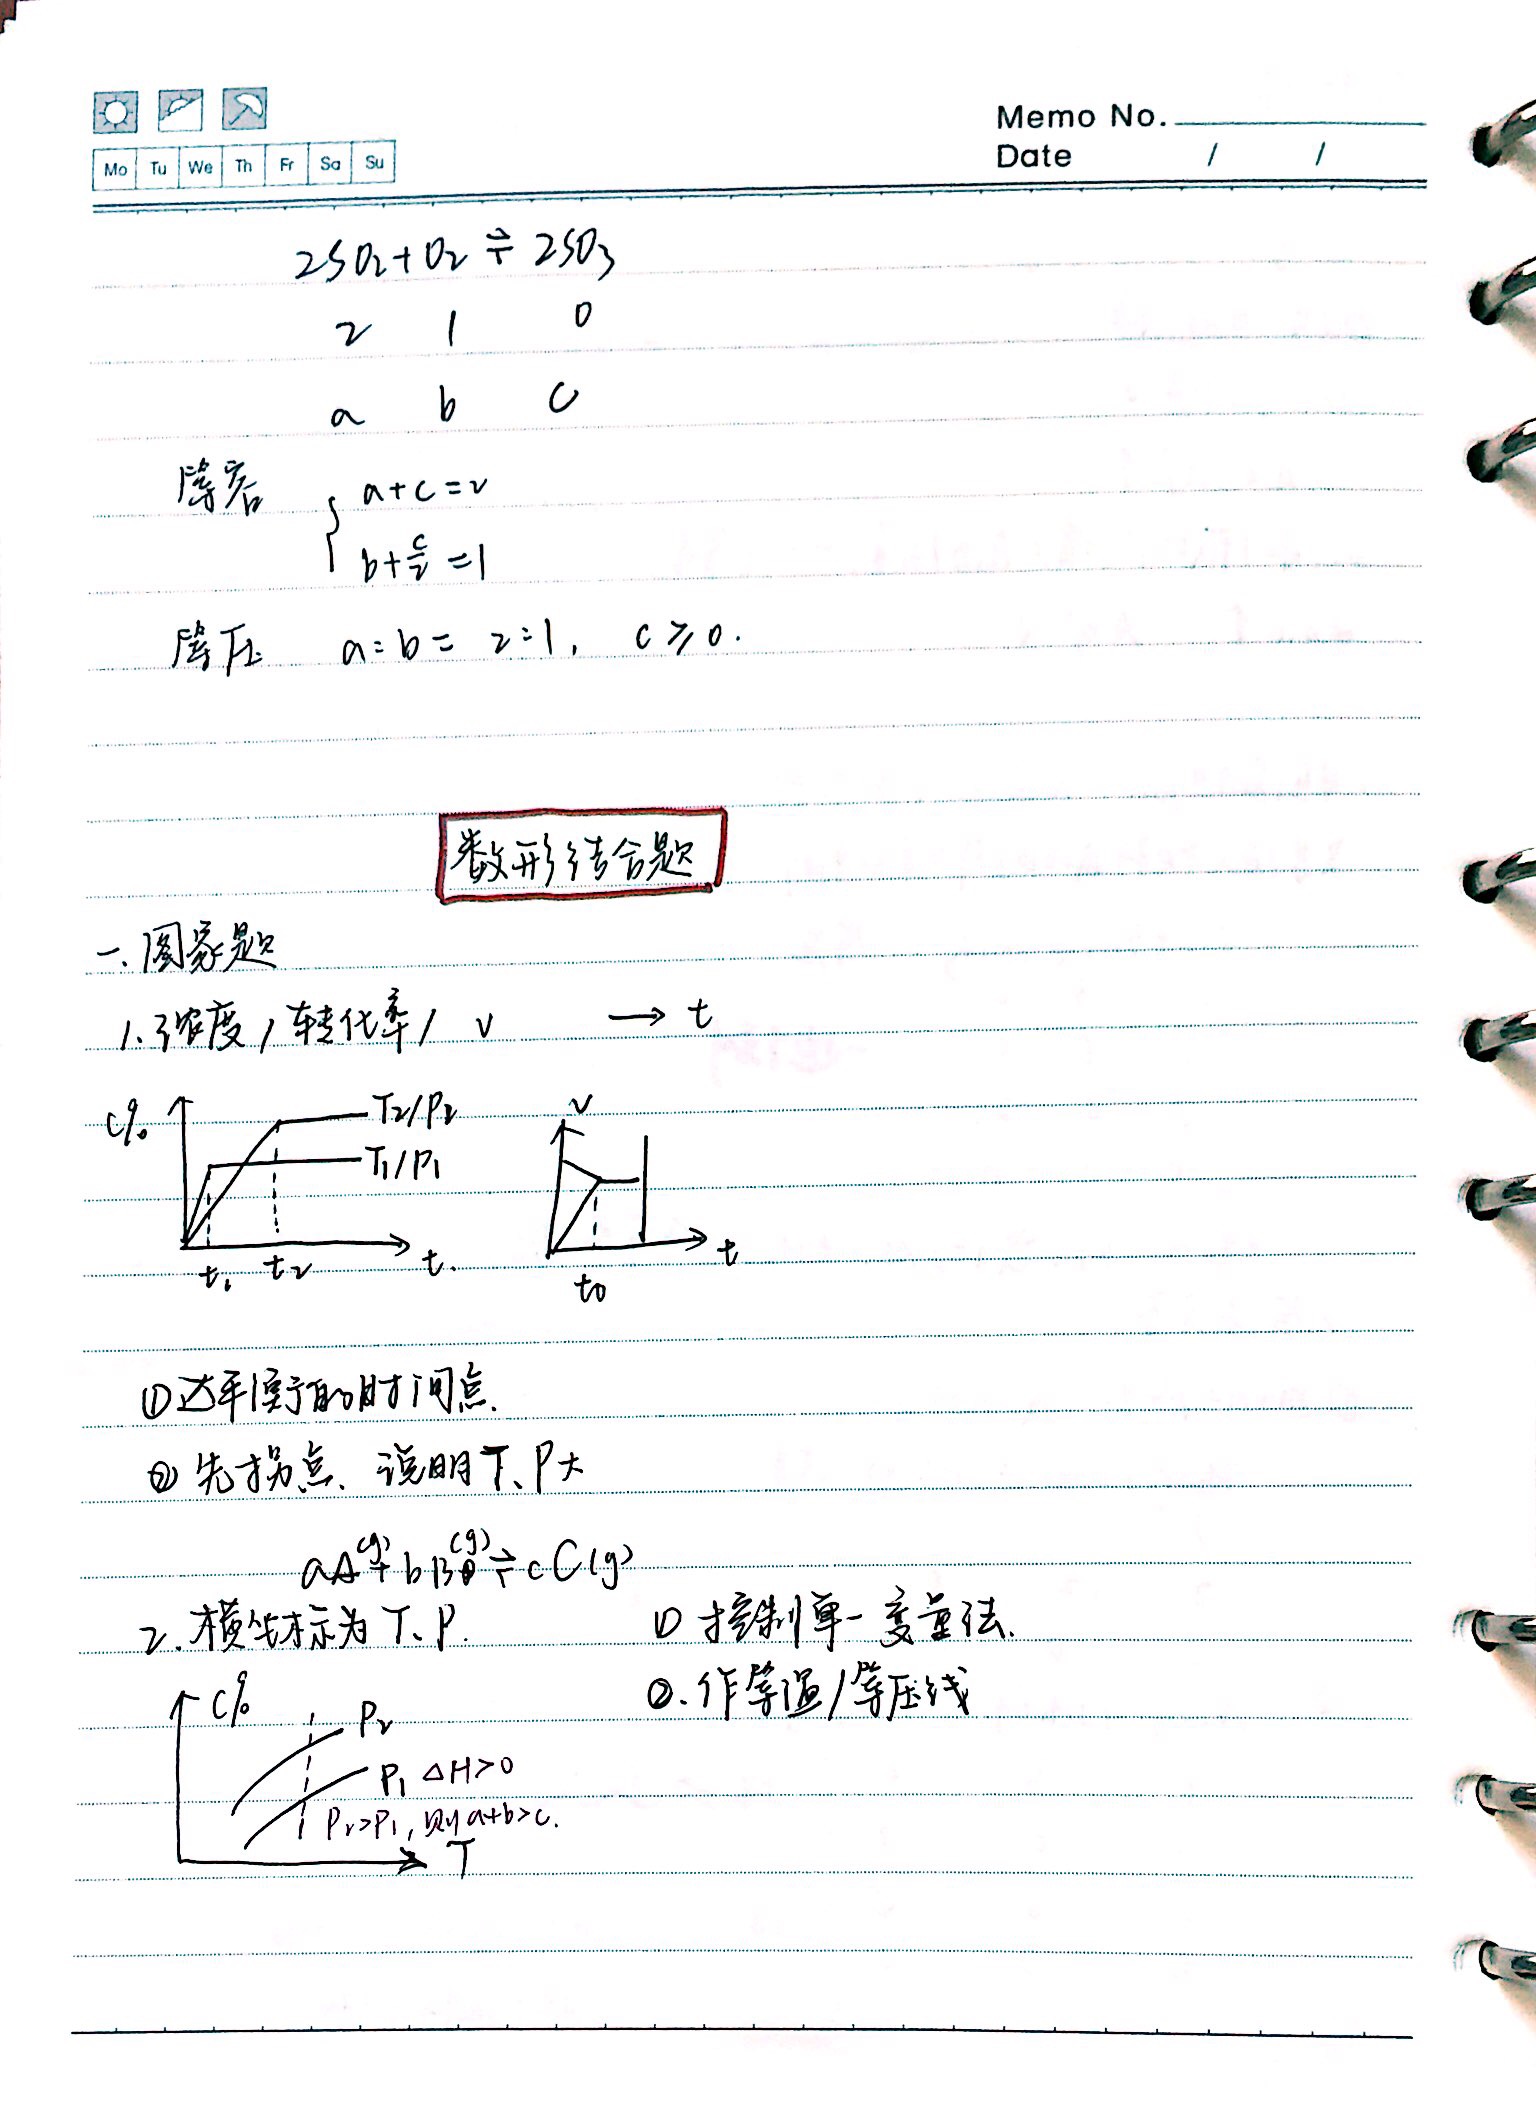 Memo No.
Mo Tu We Th Fr Sa Su
Date / /
2SO₂+O₂⇌2SO₃
2 1 0
a b c
等容 { a+c=2
b+c/2=1
等压 a:b=2:1, c≥0.
数形结合题
一.图象题
1.浓度/转化率/v → t
C% T₂/P₂
T₁/P₁
t₁ t₂ t.
v
t₀ t
①达平衡的时间点.
②先拐点、说明T、P大
aA(g)+bB(g)⇌cC(g)
2.横坐标为T、P. ①控制单一变量法.
②.作等温/等压线
C% P₂
P₁ △H>0
P₂>P₁,则a+b>c.
T